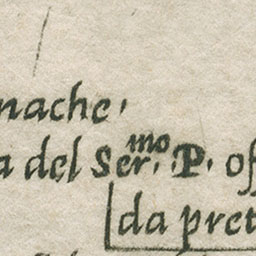 nache.
a del Ser.mo P. of
da pret